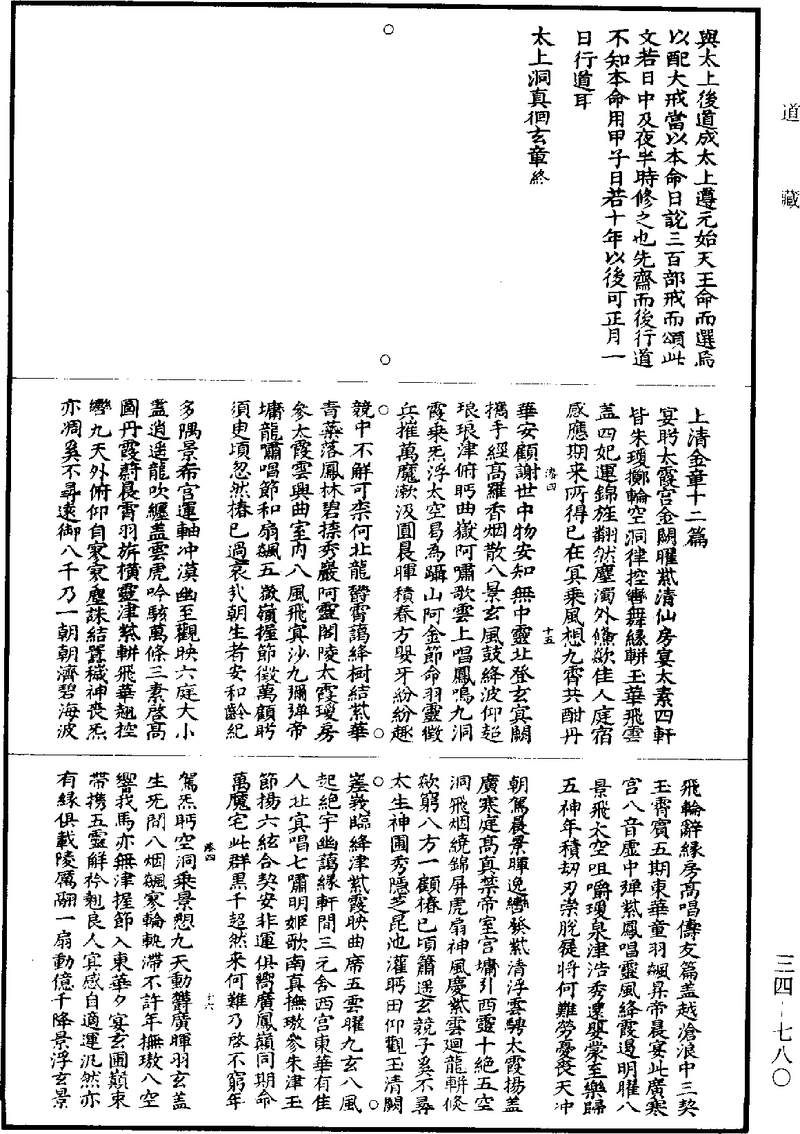 道藏
與太上後道成太上遵元始天王命而選焉
以配大戒當以本命日說三百部戒而頌此
文若日中及夜半時修之也先齋而後行道
不知本命用甲子日若十年以後可正月一
日行道耳
太上洞真徊玄章終
上清金章十二篇
宴眄太霞宮金闕曜紫清仙房宴太素四軒
皆朱瓊擲輪空洞津控轡舞緣軿玉華飛雲
蓋四妃運錦旌翻然塵濁外儵歘佳人庭宿
感應期來所得已在冥乘風想九霄共酣丹
華安顧謝世中物安知無中靈北登玄冥闕
攜手經高羅香烟散八景玄風鼓絳波仰超
琅琅津俯眄曲嶽阿嘯歌雲上唱鳳鳴九洞
霞乘炁浮太空曷為躡山阿金節命羽靈徵
兵摧萬魔漱汲圓晨暉積春方嬰牙紛紛趣
競中不解可柰何北龍鬱霄藹絳樹結紫華
青葉落鳳林碧㯶秀巖阿靈閣陵太霞瓊房
參太霞雲輿曲室內八風飛冥沙九彌彈帝
墉龍嘯唱節和扇飆五嶽嶺握節徵萬顧眄
須臾頃忽然椿已過哀哉朝生者安和齡紀
多隅景希宮運軸冲漠幽至觀映六庭大小
蓋逍遙龍吹纏蓋雲虎吟駭萬條三素啓高
圖丹霞蔚晨霄羽旂橫靈津紫軿飛華翹控
轡九天外俯仰自寂寂塵誅結罣穢神喪炁
亦凋奚不尋遠御八千乃一朝朝濟碧海波
卷四
十五
飛輪辭緣房高唱儔友篇蓋越滄浪中三契
玉霄賓五期東華童羽飆昇帝晨宴此廣寒
宮八音虛中彈紫鳳唱靈風絳霞邊明曜八
景飛太空咀嚼瓊泉津浩秀遐欝蒙至樂歸
五神年積劫刃崇脫屣將何難勞憂喪天冲
朝駕晨景暉逸轡發紫清浮雲騁太霞揚蓋
廣寒庭高真禁帝室宮墉引西靈十絕五空
洞飛烟繞錦屏虎扇神風慶紫雲迴龍軿倏
歘窮八方一顧椿已頃簫遙玄競子奚不尋
太生神圃秀隱芝昆池灌眄田仰觀玉清闕
崟峩臨絳津紫霞映曲席五雲曜九玄八風
起絕宇幽藹緣軒間三元舍西宮東華有佳
人北冥唱七嘯明姬歌南真撫璈參朱津玉
節揚六絃合契安非運俱嚮廣鳳嶺同期命
萬魔宅此群黑千超然來何難乃啓不窮年
駕炁眄空洞乘景想九天動欝廣暉羽玄蓋
生死間八烟飆家輪軌滯不許年撫璈八空
嚮我馬亦無津握節入東華夕宴玄圃巔束
帶攜五靈解衿勉良人冥感自適運汎然亦
有緣俱載陵厲翮一扇動億千降景浮玄景
卷四
十六
三四－七八〇